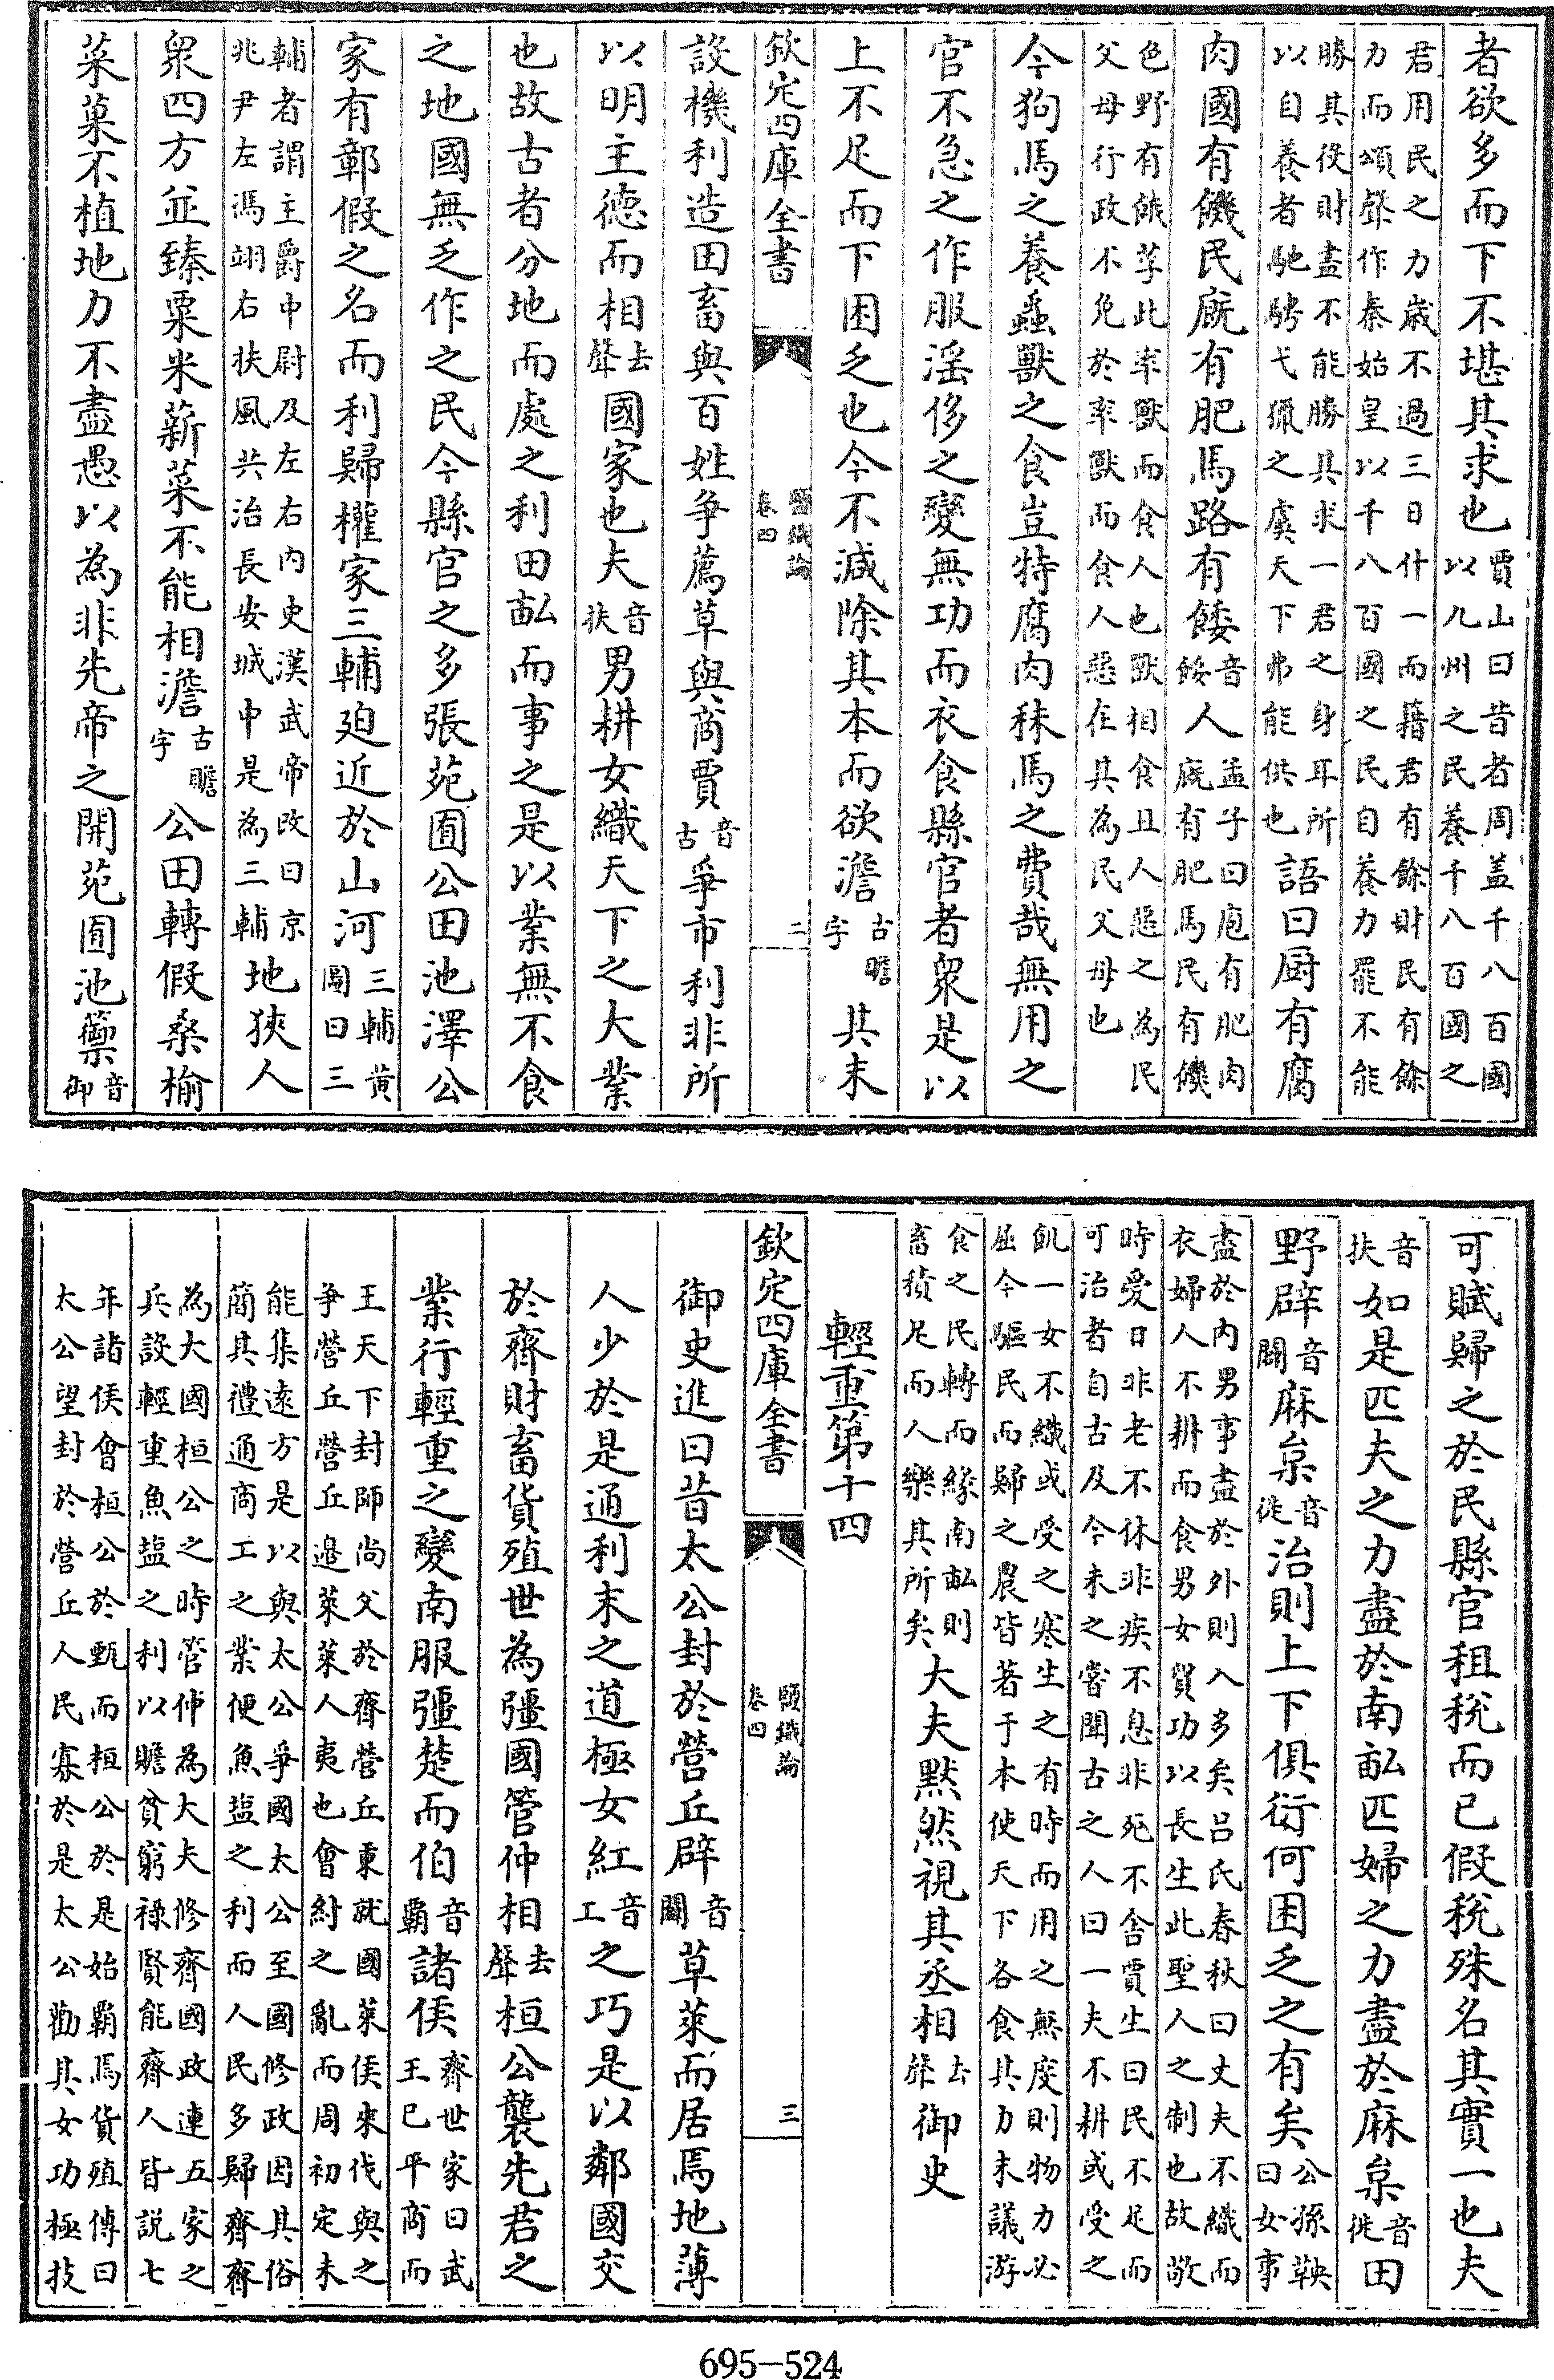 者欲多而下不堪其求也賈山曰昔者周盖千八百國以九州之民養千八百國之
君用民之力歳不過三日什一而籍君有餘財民有餘力而頌聲作秦始皇以千八百國之民自養力罷不能
勝其役財盡不能勝其求一君之身耳所以自養者馳騁弋獵之虞天下弗能供也語曰厨有腐
肉國有饑民廐有肥馬路有餧音餒人孟子曰庖有肥肉廐有肥馬民有饑
色野有餓莩此率獸而食人也獸相食且人惡之為民父母行政不免於率獸而食人惡在其為民父母也
今狗馬之養蟲獸之食豈特腐肉秣馬之費哉無用之
官不急之作服滛侈之變無功而衣食縣官者衆是以
上不足而下困乏也今不減除其本而欲澹古贍字其末
欽定四庫全書 鹽鐵論 卷四 二
設機利造田畜與百姓争薦草與商賈音古爭市利非所
以明主德而相去聲國家也夫音扶男耕女織天下之大業
也故古者分地而處之利田畝而事之是以業無不食
之地國無乏作之民今縣官之多張苑囿公田池澤公
家有鄣假之名而利歸權家三輔廹近於山河三輔黄圖曰三
輔者謂主爵中尉及左右内史漢武帝改曰京兆尹左馮翊右扶風共治長安城中是為三輔地狹人
衆四方並臻粟米薪菜不能相澹古贍字公田轉假桑榆
菜菓不植地力不盡愚以為非先帝之開苑囿池籞音御
可賦歸之於民縣官租稅而已假稅殊名其實一也夫
音扶如是匹夫之力盡於南畝匹婦之力盡於麻枲音徙田
野辟音闢麻枲音徙治則上下俱衍何困乏之有矣公孫鞅曰女事
盡於内男事盡於外則入多矣吕氏春秋曰丈夫不織而衣婦人不耕而食男女貿功以長生此聖人之制也故敬
時愛日非老不休非疾不息非死不舍賈生曰民不足而可治者自古及今未之嘗聞古之人曰一夫不耕或受之
飢一女不織或受之寒生之有時而用之無度則物力必屈今驅民而歸之農皆著于本使天下各食其力末議游
食之民轉而緣南畝則畜積足而人樂其所矣大夫默然視其丞相去聲御史
輕重第十四
欽定四庫全書 鹽鐵論 卷四 三
御史進曰昔太公封於營丘辟音闢草萊而居焉地薄
人少於是通利末之道極女紅音工之巧是以鄰國交
於齊財畜貨殖世為彊國管仲相去聲桓公襲先君之
業行輕重之變南服彊楚而伯音覇諸侯齊世家曰武王已平商而
王天下封師尚父於齊營丘東就國萊侯來伐與之爭營丘營丘邉萊萊人夷也會紂之亂而周初定未
能集遠方是以與太公爭國太公至國修政因其俗簡其禮通商工之業便魚塩之利而人民多歸齊齊
為大國桓公之時管仲為大夫修齊國政連五家之兵設輕重魚塩之利以贍貧窮祿賢能齊人皆説七
年諸侯會桓公於甄而桓公於是始覇焉貨殖傳曰太公望封於營丘人民寡於是太公勸其女功極技
695-524